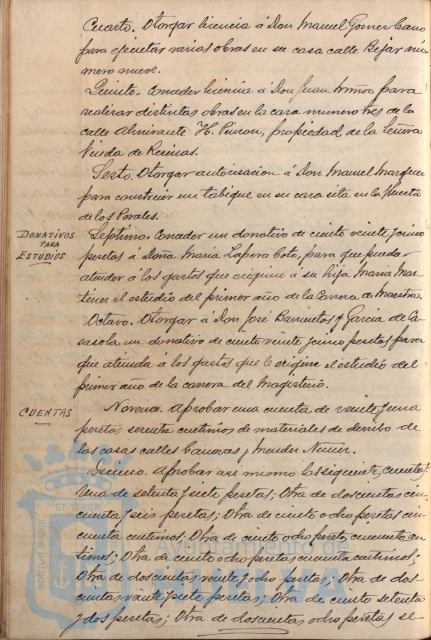 Cuarto. Otorgar licencia á Don Manuel Gomez Cano
para ejecutar varios obras en su casa calle Bejar nú
mero nueve.
Quinto. Conceder licencia á Don Juan para
realizar distintas obras en la casa numero tres de la
calle Almirante H. Pinzon, propiedad de la Señora
Viuda de Recinas.
Sexto. Otorgar autorizacion á Don Manuel Marquez
para construir un tabique en su casa sita en la Placeta
de los Porales.
DONATIVOS
PARA
ESTUDIOS
Septimo. Conceder un donativo de ciento veinte y cinco
pesetas á Doña Maria Lopera Coto, para que pueda
atender á los gastos que origine á su hija Maria Mar
tinez el estudio del primer año de la Carrera de Maestra.
Octavo. Otorgar á Don José Barrientos y Garcia de Ca
sasola un donativo de ciento veinte y cinco pesetas para
que atienda á los gastos que le origine el estudio del
primer año de la carrera del Magisterio.
CUENTAS
Noveno. Aprobar una cuenta de veinte y una
peseta, sesenta centimos de materiales de derribo de
las casas calles Canovas y Mendez Nuñez.
Decimo. Aprobar asi mismo las siguientes cuentas;
Una de setenta y siete pesetas; Otra de doscientas cin
cuenta y seis pesetas; Otra de ciento ocho pesetas cin
cuenta centimos; Otra de ciento ocho pesetas cincuenta cen
timos; Otra de ciento ocho pesetas cincuenta centimos;
Otra de doscientas veinte y ocho pesetas; Otra de dos
cientas veinte y siete pesetas; Otra de ciento setenta
y dos pesetas; Otra de doscientas ocho pesetas se
Ayuntamiento de
PORTUS MARIS
ET TERRAE